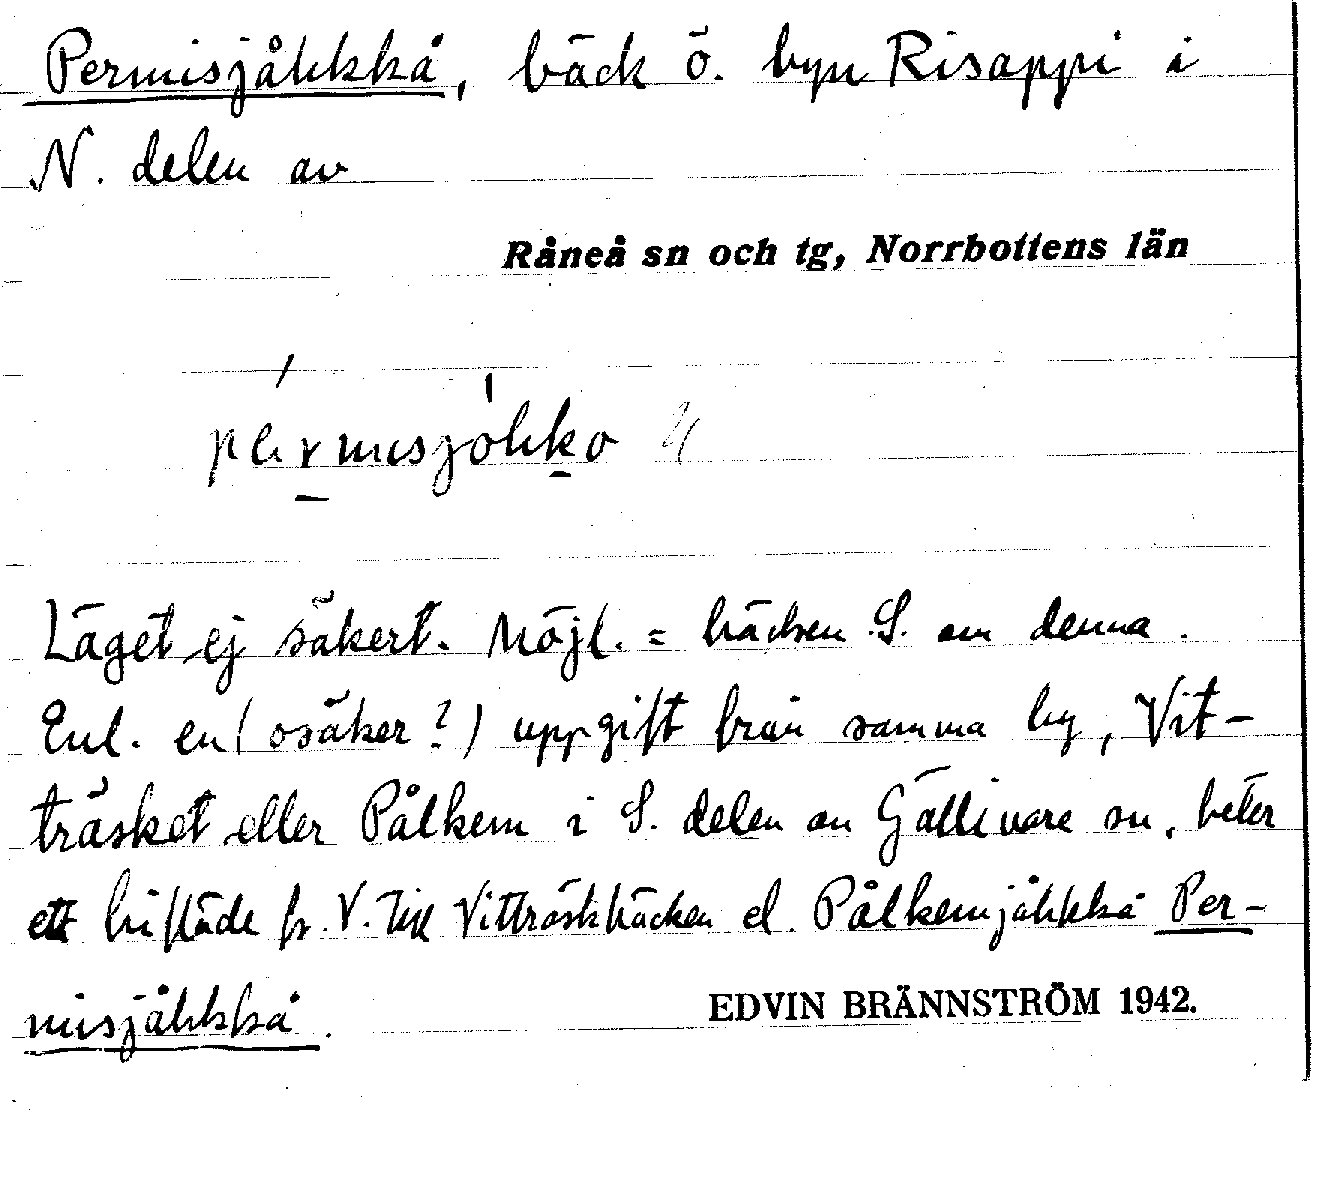 Permisjåhkkå, bäck ö. byn Risappi i
N. delen av
Råneå sn och tg, Norrbottens län
pærmisjohko
Läget ej säkert. Möjl. = bäcken S. om denna.
Enl. en (osäker?) uppgift från samma by, Vit-
träsket eller Pålkem i S. delen av Gällivare sn, heter
ett biflöde fr. V. till Vitträskbäcken el. Pålkemjåhkkå Per-
misjåhkkå.
EDVIN BRÄNNSTRÖM 1942.